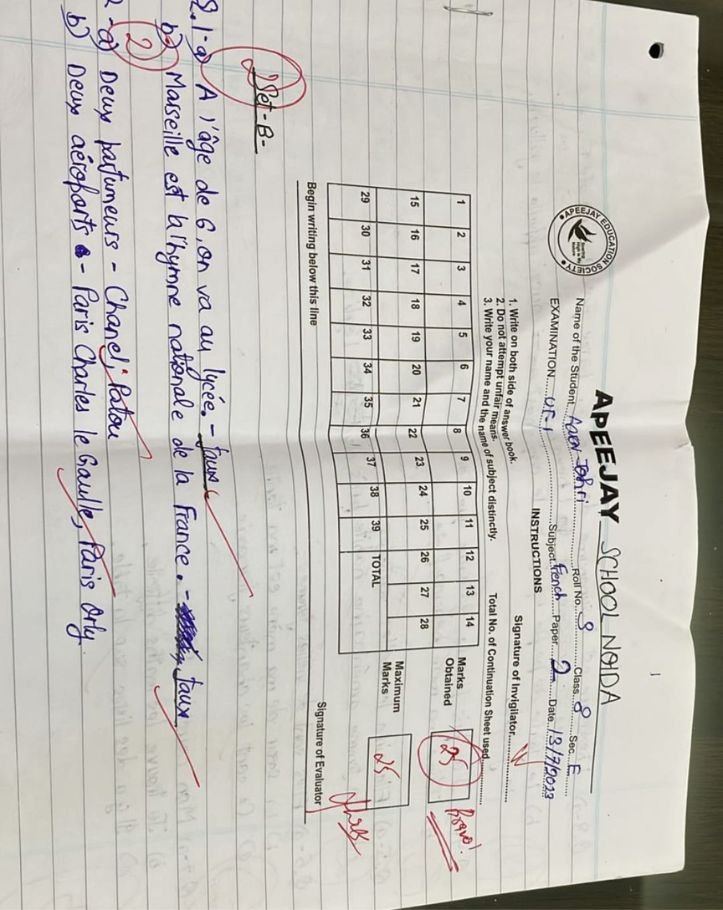 APEEJAY SCHOOL NOIDA
APEEJAY EDUCATION SOCIETY
Name of the Student Johri Roll No. 9 Class 8 Sec. F
EXAMINATION UT-1 Subject French Paper 2 Date 13/7/2023
INSTRUCTIONS
1. Write on both side of answer book.
2. Do not attempt unfair means.
3. Write your name and the name of subject distinctly.
Signature of Invigilator
Total No. of Continuation Sheet used
1 2 3 4 5 6 7 8 9 10 11 12 13 14
Marks Obtained
25
Bravo!
15 16 17 18 19 20 21 22 23 24 25 26 27 28
Maximum Marks
25
29 30 31 32 33 34 35 36 37 38 39 TOTAL
Signature of Evaluator
Begin writing below this line
Set-B-
2
Q.1-a) A l'âge de 6, on va au lycée. - faux
b) Marseille est l'hymne nationale de la France. - faux
2
2-a) Deux parfumeurs - Chanel, Patou
b) Deux aéroports - Paris Charles le Gaulle, Paris Orly.